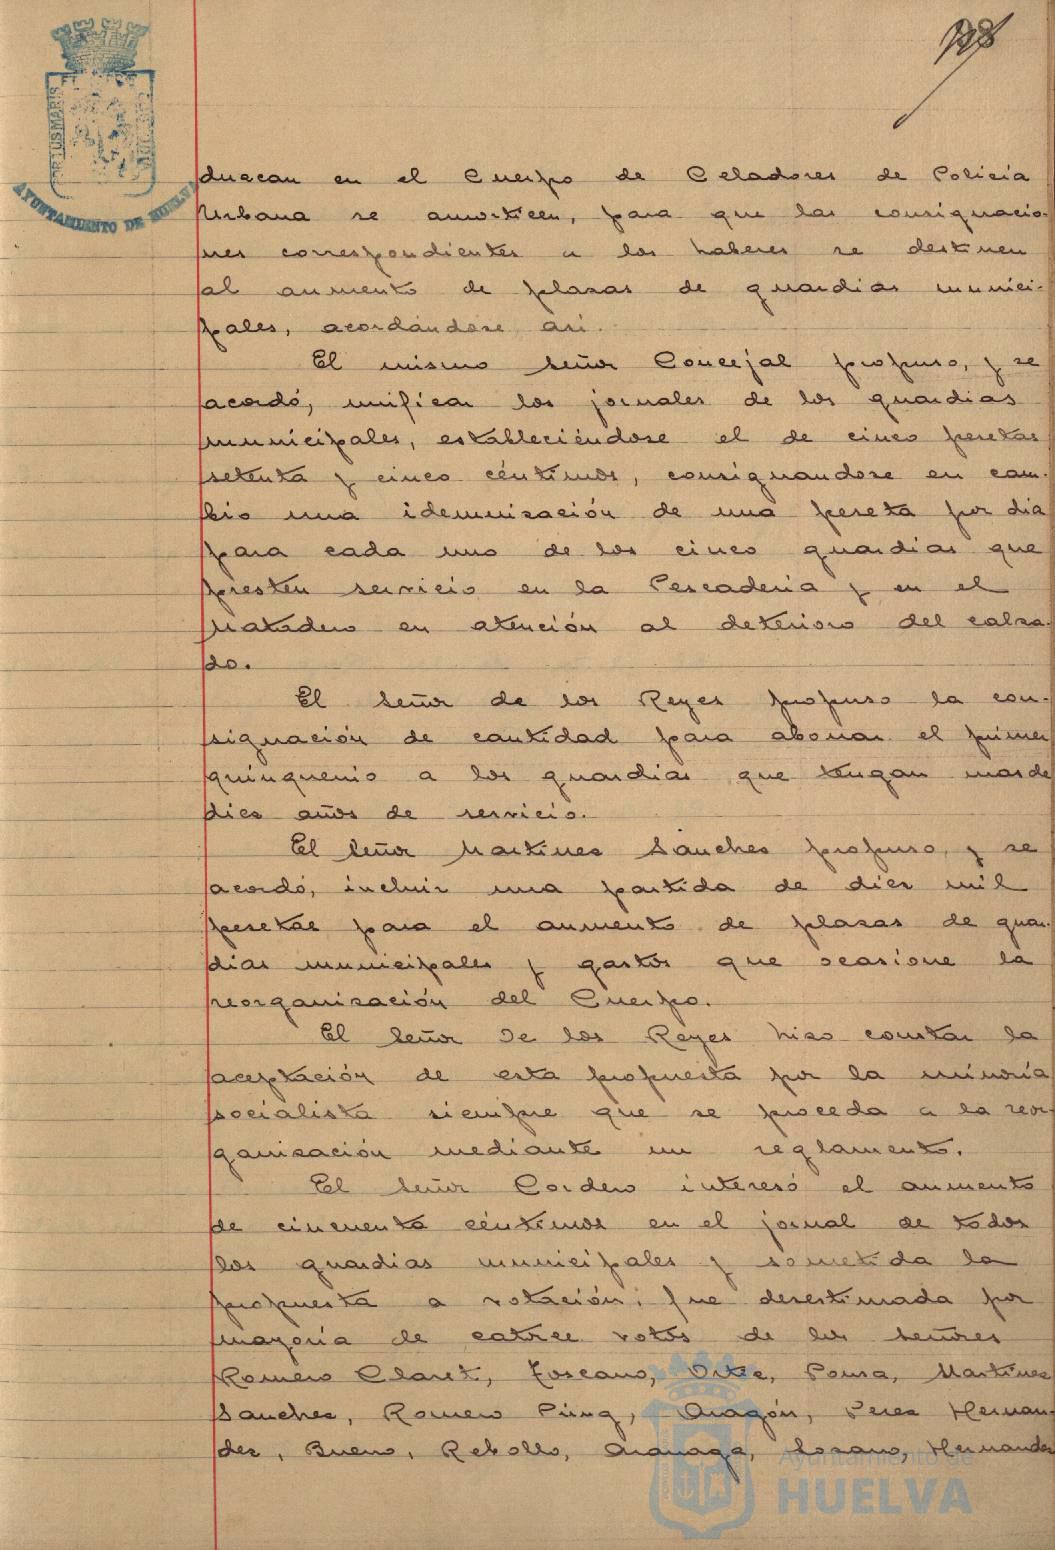 128
PORTUS MARIS
AYUNTAMIENTO DE HUELVA
duzcan en el Cuerpo de Celadores de Policia
Urbana se amorticen, para que las consignacio-
nes correspondientes a los haberes se destinen
al aumento de plazas de guardias munici-
pales, acordándose asi.
El mismo señor Concejal propuso, y se
acordó, unificar los jornales de los guardias
municipales, estableciéndose el de cinco pesetas
setenta y cinco céntimos, consignandose en cam-
bio una idemnisación de una peseta por dia
para cada uno de los cinco guardias que
presten servicio en la Pescaderia y en el
Matadero en atención al deterioro del calza-
do.
El señor de los Reyes propuso la con-
signación de cantidad para abonar el primer
quinquenio a los guardias que tengan mas de
diez años de servicio.
El señor Martinez Sanchez propuso, y se
acordó, incluir una partida de diez mil
pesetas para el aumento de plazas de guar-
dias municipales y gastos que ocasione la
reorganización del Cuerpo.
El señor De los Reyes hizo constar la
aceptación de esta propuesta por la minoría
socialista siempre que se proceda a la reor-
ganización mediante un reglamento.
El señor Cordero interesó el aumento
de cincuenta céntimos en el jornal de todos
los guardias municipales y sometida la
propuesta a votación, fue desestimada por
mayoria de catorce votos de los señores
Romero Claret, Toscano, Ortiz, Ponsa, Martinez
Sanchez, Romero Puig, Aragón, Perez Hernan-
dez, Bueno, Rebollo, Aranaga, Lozano, Hernandez
Ayuntamiento de
HUELVA